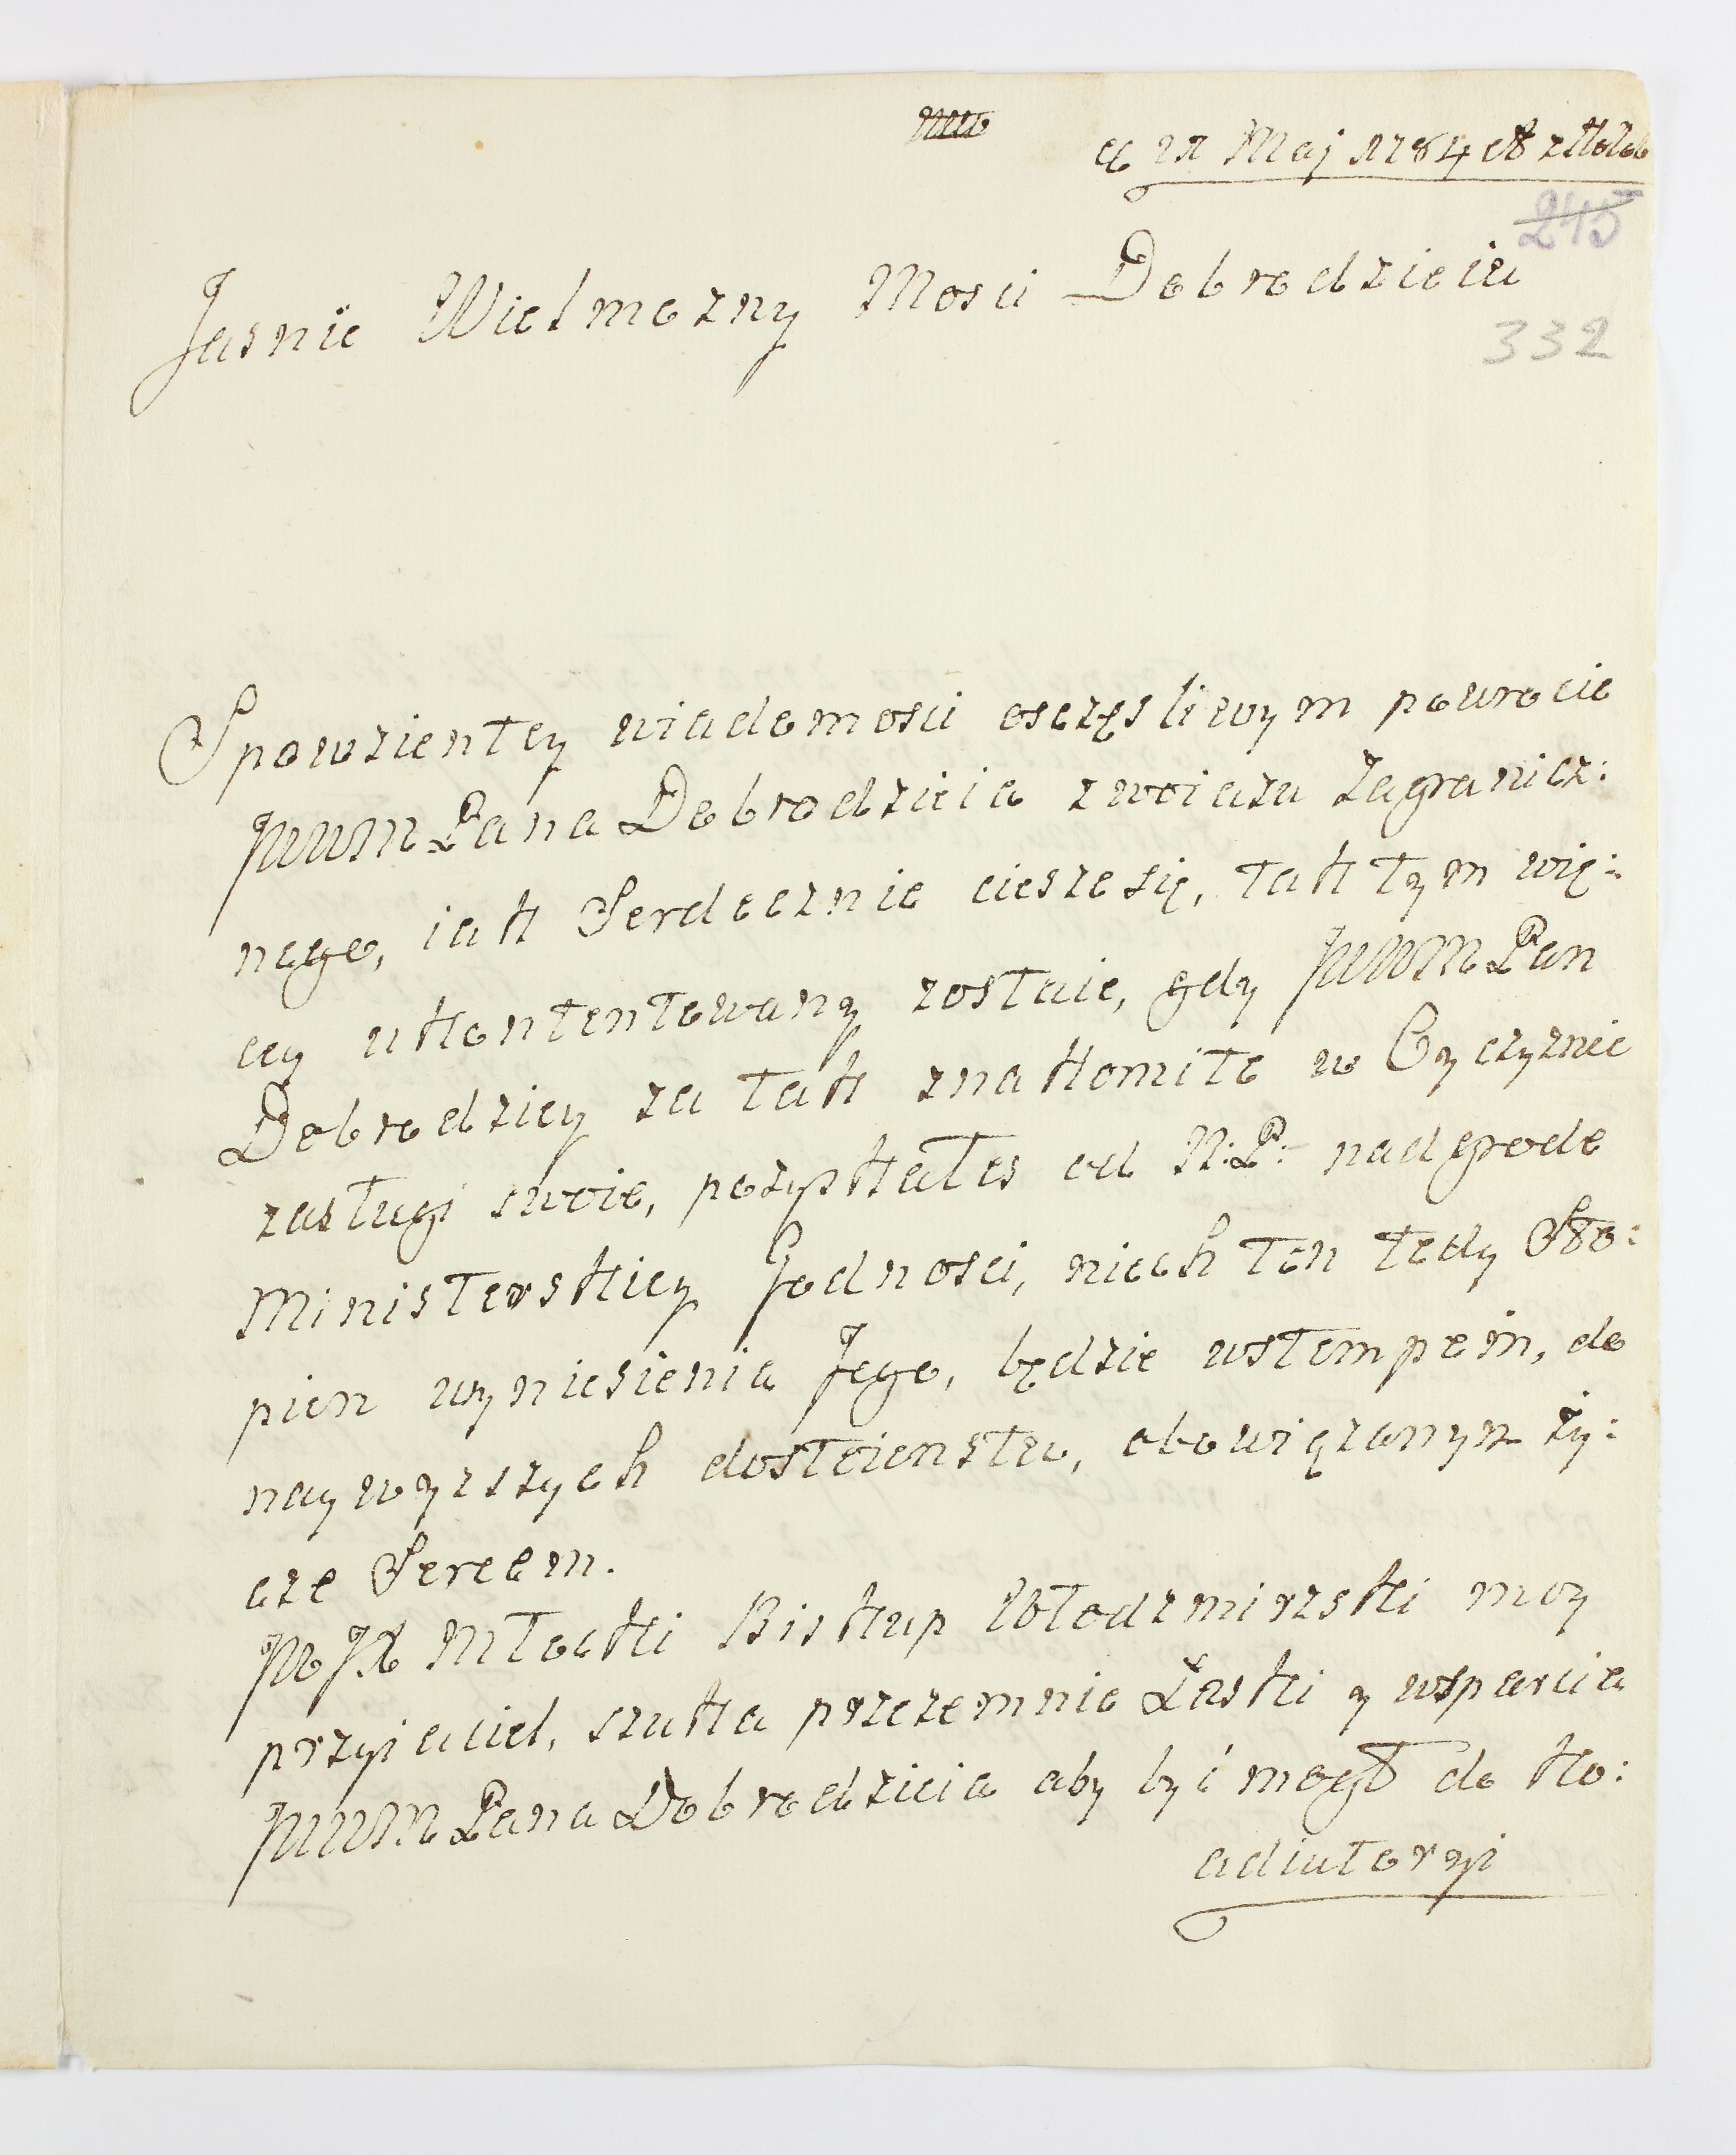 21 Maj 1784
245
Jasnie Wielmozny Mosci Dobrodzieiu
332
Spowzientey wiadomosci osczęsliwym powrocie
JWWM Pana Dobrodzieia zwoiazu Zagranicz:
nego, iak Serdecznie ciesze się, tak tym wię:
cey ukontentowany zostaie, gdy JWWM Pan
Dobrodziey za tak znakomite w Oyczyznie
zasługi swoie, pozyskałes od N: P: nadgrode
Ministerskiey Godnosci, niech ten tedy Sto:
pien wyniesienia Jego, będzie wstempem, do
naywyzszych dostoienstw, obowiązanym ży:
cze Sercem.
Młocki Biskup Włodzmirzski moy
przyiaciel, szuka przezemnie Łaski y wsparcia
JWWM Pana Dobrodzieia aby być mogł do Ko:
adiutoryi